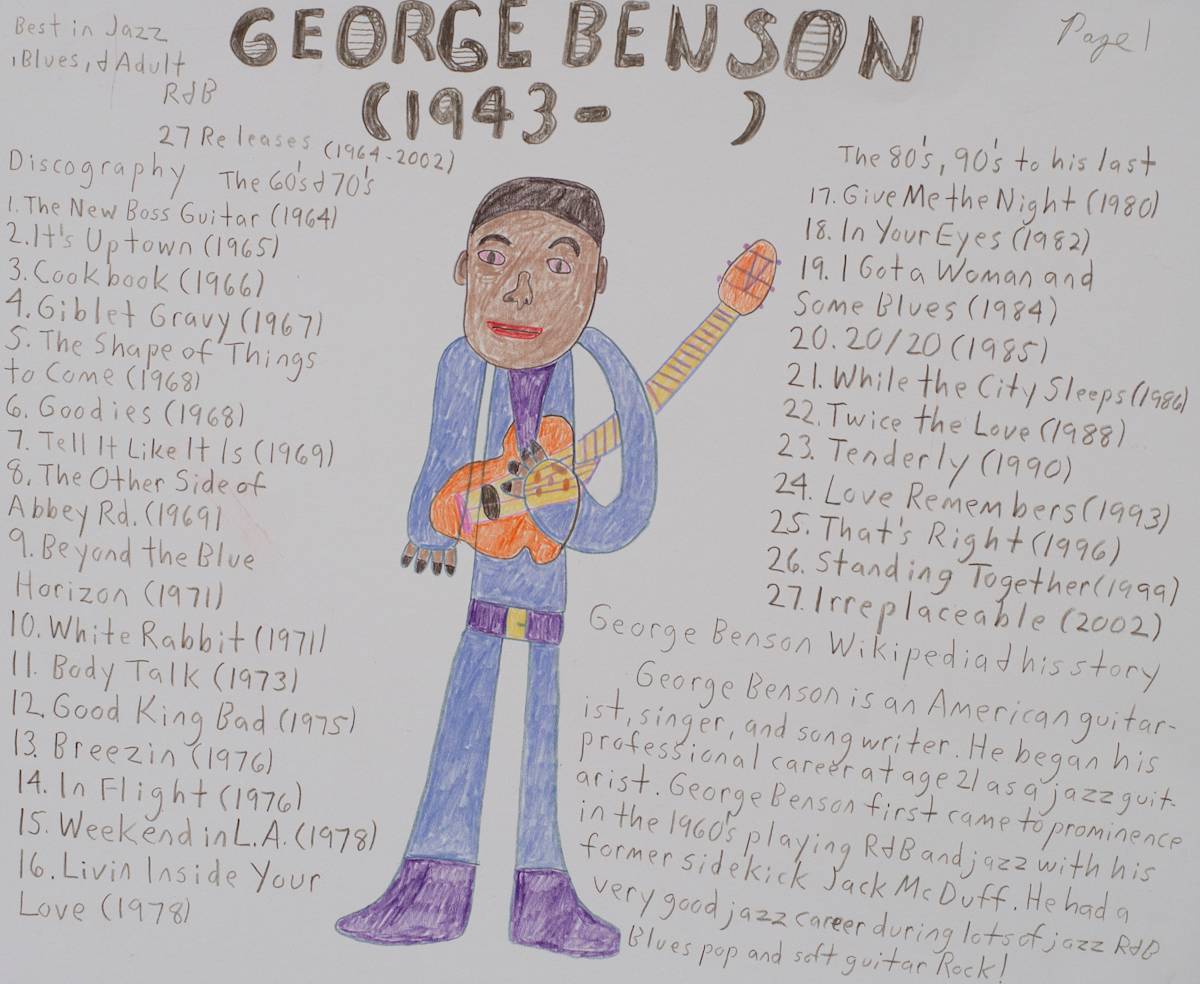 Best in Jazz
, Blues, & Adult
R&B
GEORGE BENSON
(1943-   )
Page 1
27 Releases (1964-2002)
Discography The 60's & 70's
1. The New Boss Guitar (1964)
2. It's Uptown (1965)
3. Cookbook (1966)
4. Giblet Gravy (1967)
5. The Shape of Things
to Come (1968)
6. Goodies (1968)
7. Tell It Like It Is (1969)
8. The Other Side of
Abbey Rd. (1969)
9. Beyond the Blue
Horizon (1971)
10. White Rabbit (1971)
11. Body Talk (1973)
12. Good King Bad (1975)
13. Breezin (1976)
14. In Flight (1976)
15. Weekend in L.A. (1978)
16. Livin Inside Your
Love (1978)
The 80's, 90's to his last
17. Give Me the Night (1980)
18. In Your Eyes (1982)
19. I Got a Woman and
Some Blues (1984)
20. 20/20 (1985)
21. While the City Sleeps (1986)
22. Twice the Love (1988)
23. Tenderly (1990)
24. Love Remembers (1993)
25. That's Right (1996)
26. Standing Together (1999)
27. Irreplaceable (2002)
George Benson Wikipedia & his story
George Benson is an American guitar-
ist, singer, and songwriter. He began his
professional career at age 21 as a jazz guit-
arist. George Benson first came to prominence
in the 1960's playing R&B and jazz with his
former sidekick Jack McDuff. He had a
very good jazz career during lots of jazz R&B
Blues pop and soft guitar Rock!